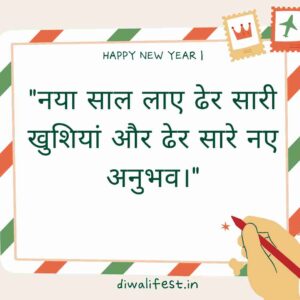 HAPPY NEW YEAR |
"नया साल लाए ढेर सारी
खुशियां और ढेर सारे नए
अनुभव।"
diwalifest.in